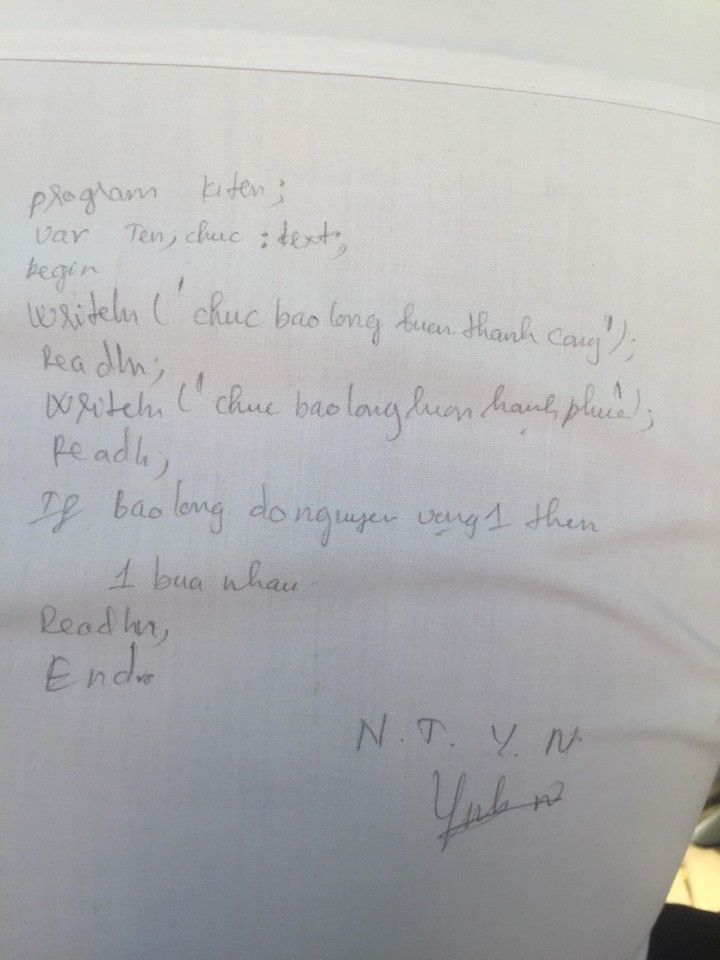 program kiten;
var Ten, chuc : text;
begin
writeln ( ' chuc bao long luon thanh cong');
Readln;
writeln (' chuc bao long luon hanh phuc');
Readln;
If bao long do nguyen vong 1 then
1 bua nhau.
Readln,
End.
N. T. Y. N